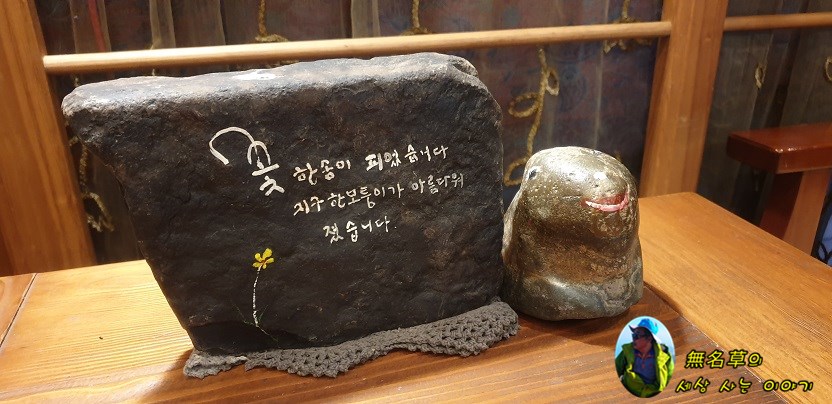 꽃 한송이 피었습니다
지구 한모퉁이가 아름다워
졌습니다.
無名草의
세상 사는 이야기